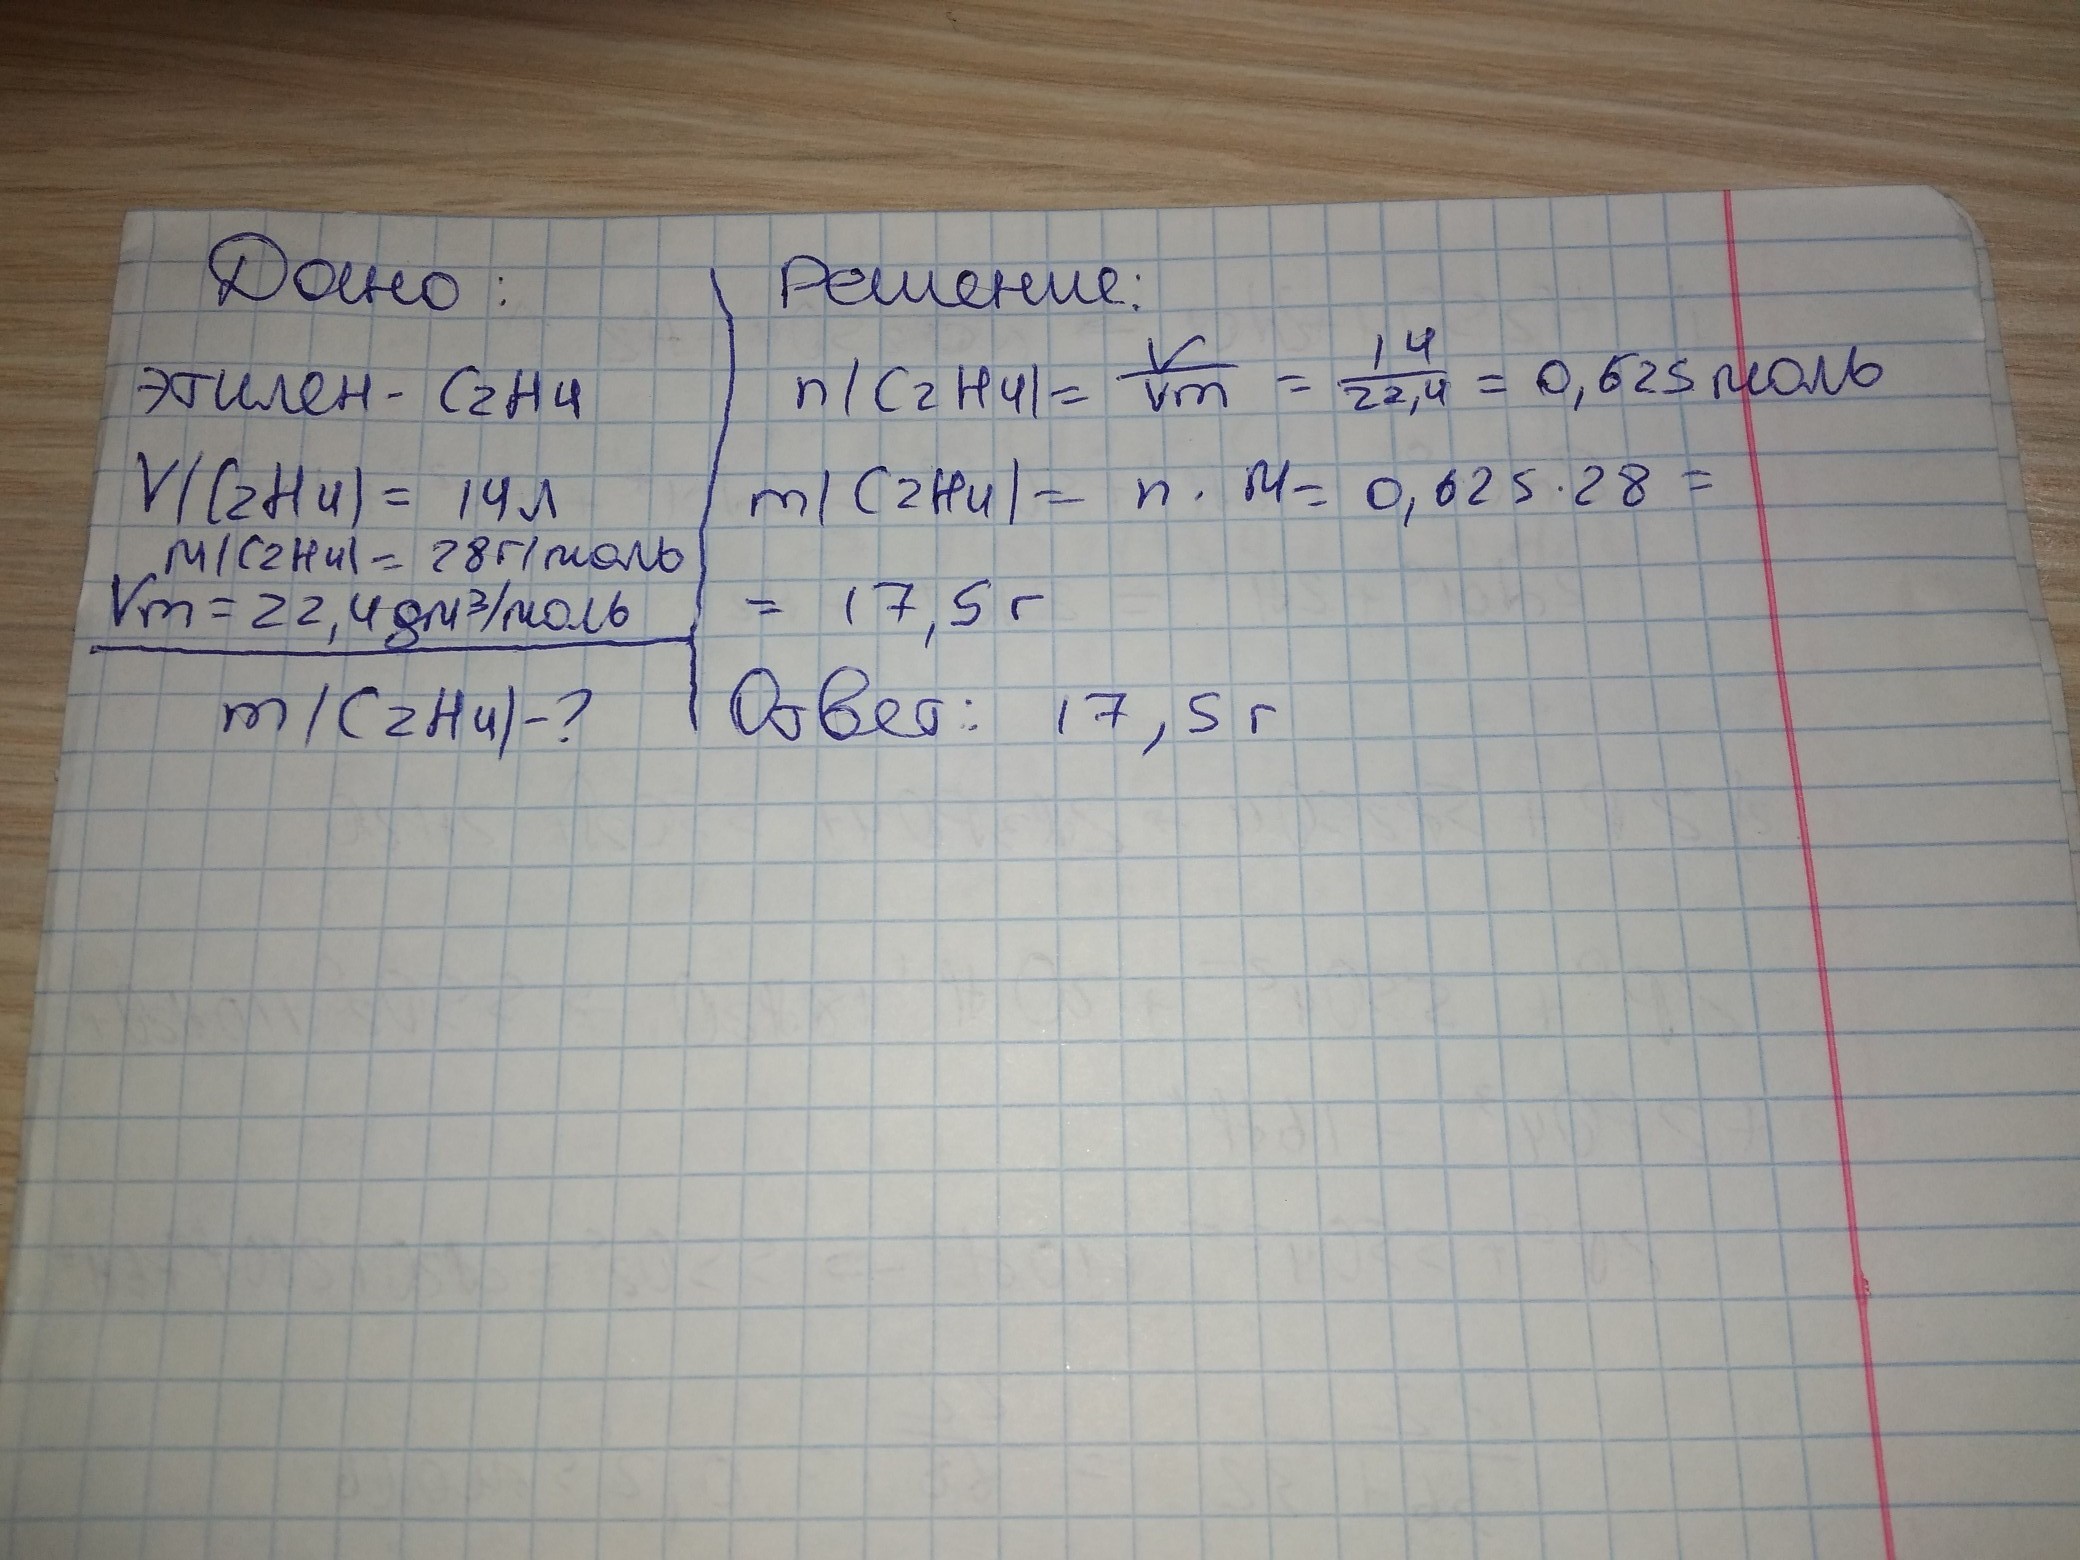 Дано:
этилен - C2H4
V(C2H4) = 14л
M(C2H4) = 28г/моль
Vm = 22,4 дм³/моль
m(C2H4) - ?
Решение:
n(C2H4) = V/Vm = 14/22,4 = 0,625 моль
m(C2H4) = n · M = 0,625 · 28 =
= 17,5 г
Ответ: 17,5 г